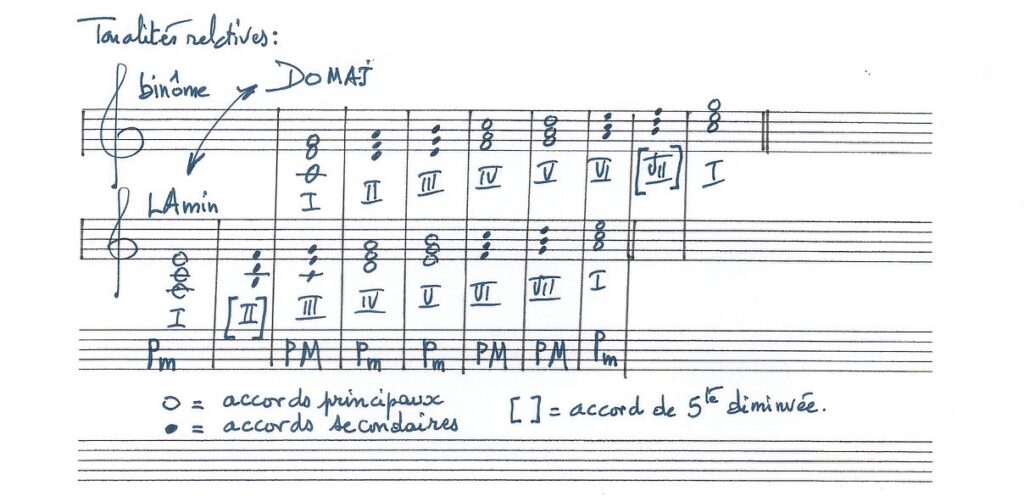 Tonalités relatives:
binôme DO MAJ
I II III IV V VI [VII] I
LAmin
I [II] III IV V VI VII I
Pm PM Pm Pm PM PM Pm
o = accords principaux
• = accords secondaires
[ ] = accord de 5te diminuée.